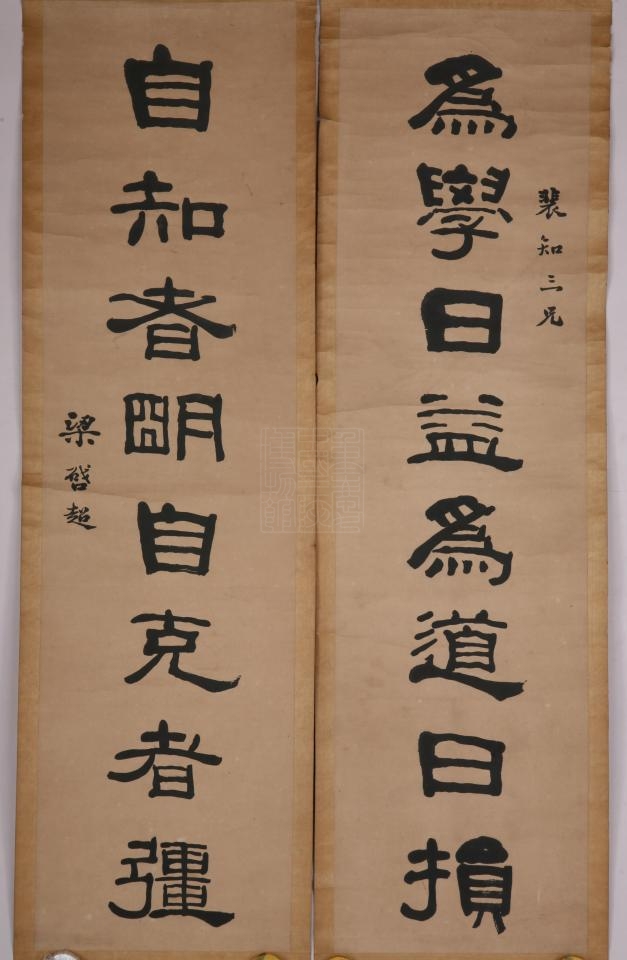 裴知三兄
為學日益為道日損
自知者明自克者彊
梁啓超